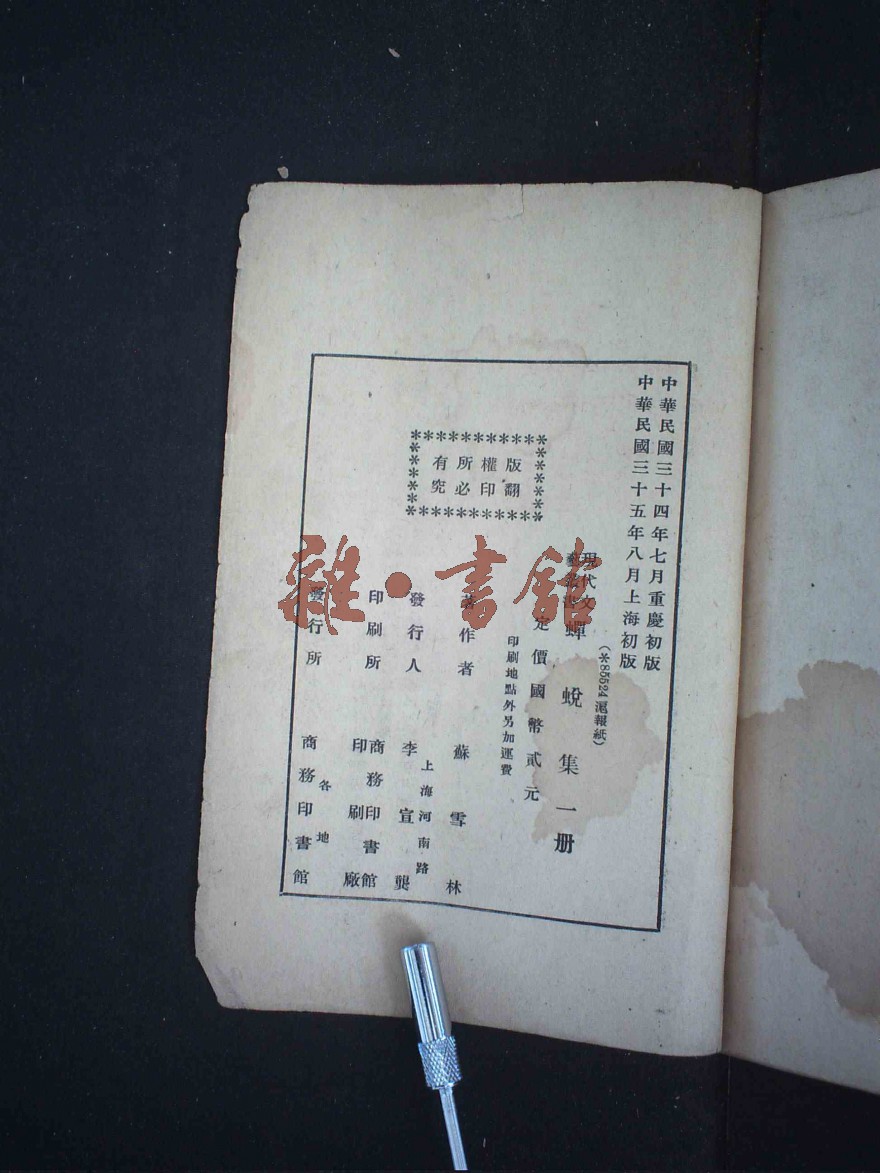 中華民國三十四年七月重慶初版
中華民國三十五年八月上海初版
(*85524滬報紙)
現代文
藝叢書
蟬蛻集一册
定價國幣貳元
印刷地點外另加運費
版權所有
翻印必究
著作者 蘇雪林
發行人 李宣龔
上海河南路
印刷所 商務印書館
印刷廠
發行所 商務印書館
各地
雜·書館